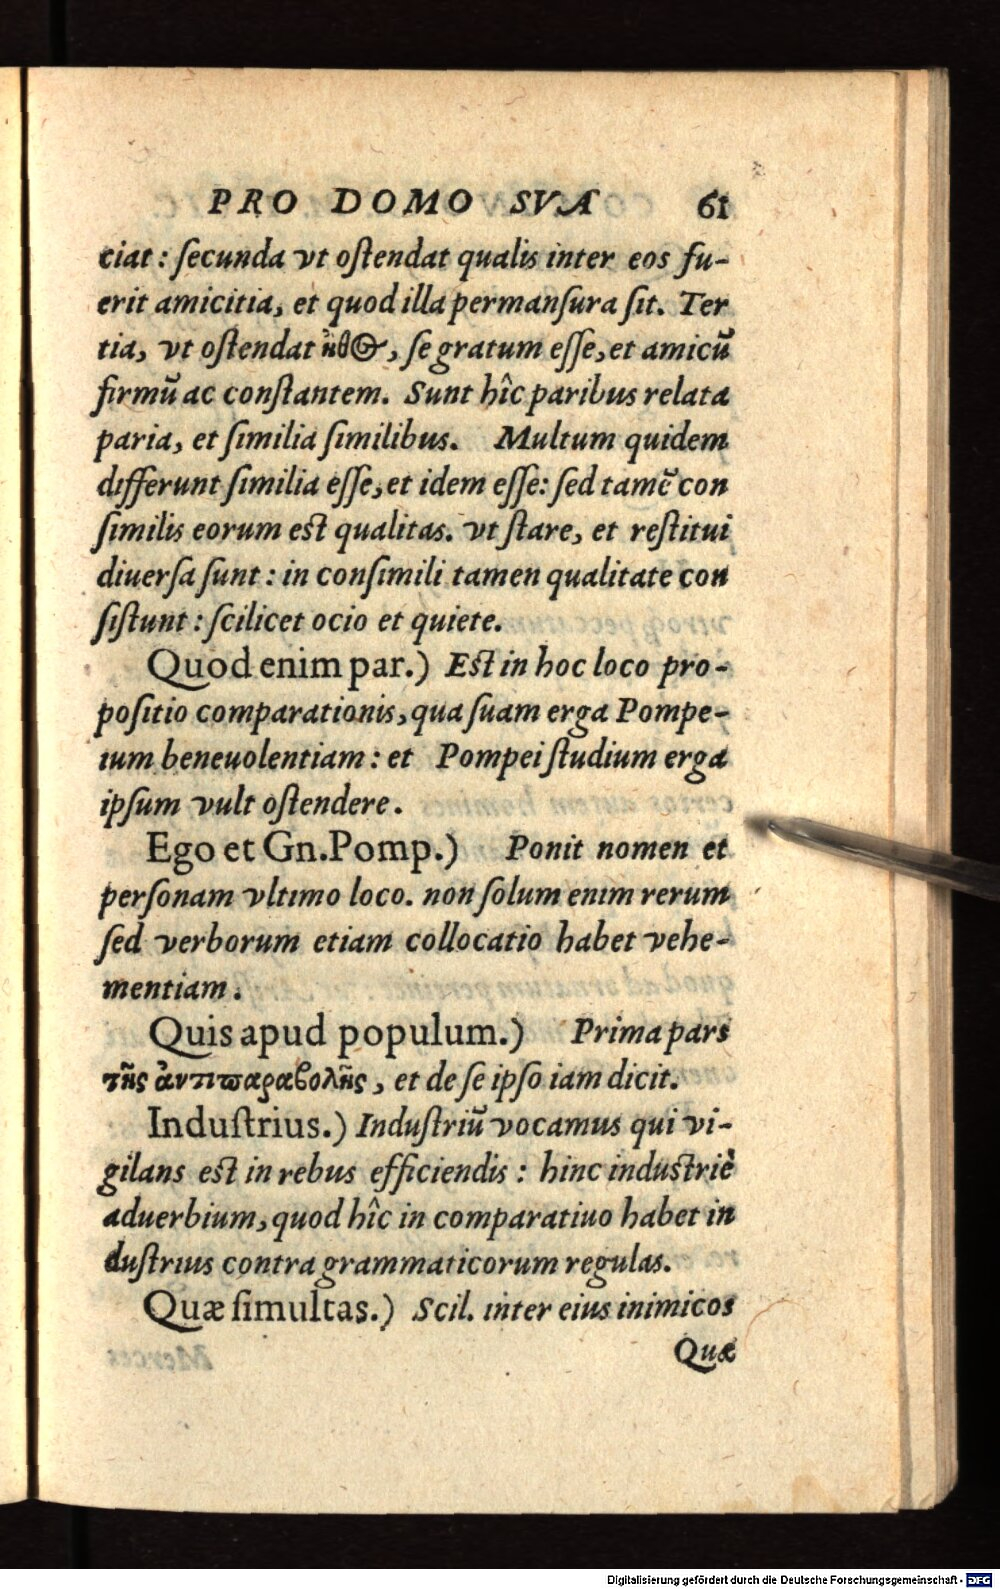 PRO DOMO SVA 61
ciat : ſecunda vt oſtendat qualis inter eos fu-
erit amicitia, et quod illa permanſura ſit. Ter
tia, vt oſtendat ἦθος, ſe gratum eſſe, et amicū
firmū ac conſtantem. Sunt hîc paribus relata
paria, et ſimilia ſimilibus. Multum quidem
differunt ſimilia eſſe, et idem eſſe: ſed tamē con
ſimilis eorum eſt qualitas. vt ſtare, et reſtitui
diuerſa ſunt : in conſimili tamen qualitate con
ſiſtunt : ſcilicet ocio et quiete.
Quod enim par.) Eſt in hoc loco pro-
poſitio comparationis, qua ſuam erga Pompe-
ium beneuolentiam : et Pompei ſtudium erga
ipſum vult oſtendere.
Ego et Gn.Pomp.) Ponit nomen et
perſonam vltimo loco. non ſolum enim rerum
ſed verborum etiam collocatio habet vehe-
mentiam.
Quis apud populum.) Prima pars
τῆς ἀντιπαραβολῆς, et de ſe ipſo iam dicit.
Induſtrius.) Induſtriū vocamus qui vi-
gilans eſt in rebus efficiendis : hinc induſtriè
aduerbium, quod hîc in comparatiuo habet in
duſtrius contra grammaticorum regulas.
Quæ ſimultas.) Scil. inter eius inimicos
Quæ
Digitalisierung gefördert durch die Deutsche Forschungsgemeinschaft - DFG